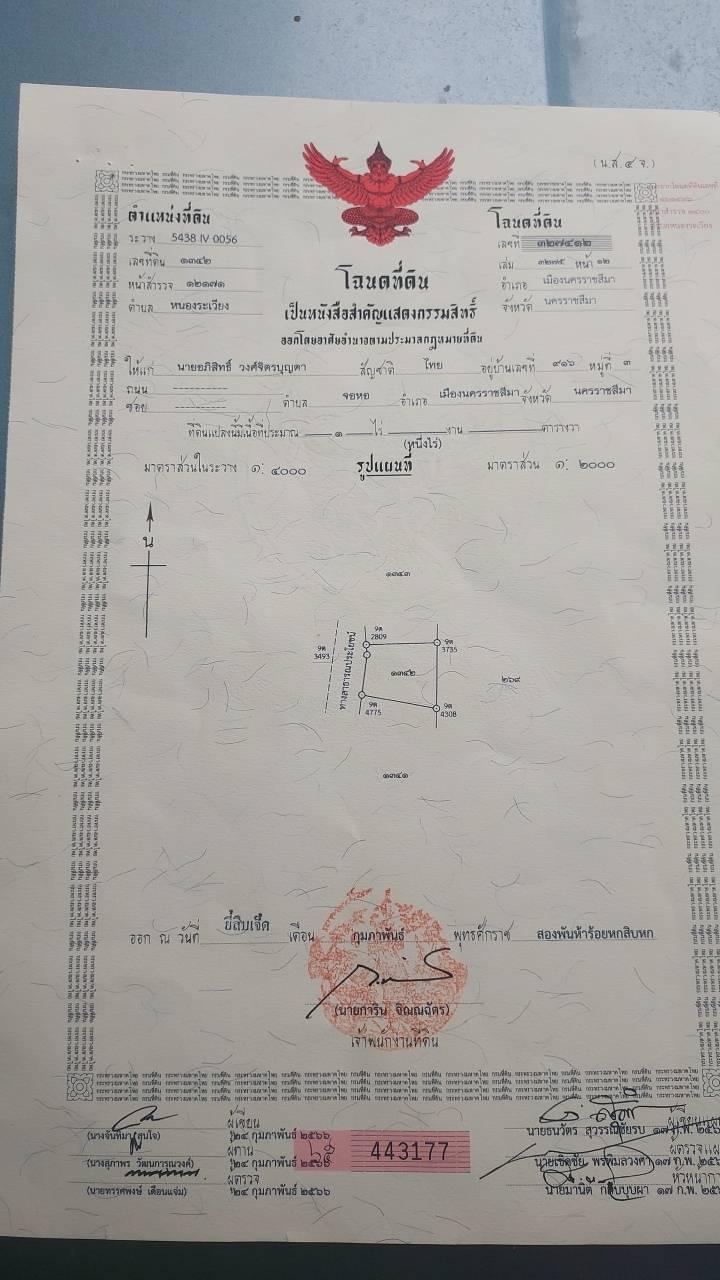 (น.ส.๔ จ.)
ตำแหน่งที่ดิน
ระวาง 5438 IV 0056
เลขที่ดิน ๑๓๔๒
หน้าสำรวจ ๑๒๑๗๑
ตำบล หนองระเวียง
โฉนดที่ดิน
เลขที่ ๓๒๗๔๑๒
เล่ม ๓๒๗๕ หน้า ๑๒
อำเภอ เมืองนครราชสีมา
จังหวัด นครราชสีมา
โฉนดที่ดิน
เป็นหนังสือสำคัญแสดงกรรมสิทธิ์
ออกโดยอาศัยอำนาจตามประมวลกฎหมายที่ดิน
ให้แก่ นายอภิสิทธิ์ วงศ์จิตรบุญตา สัญชาติ ไทย อยู่บ้านเลขที่ ๙๑๖ หมู่ที่ ๓
ถนน ----------
ซอย ---------- ตำบล จอหอ อำเภอ เมืองนครราชสีมา จังหวัด นครราชสีมา
ที่ดินแปลงนี้มีเนื้อที่ประมาณ ๑ ไร่ งาน ตารางวา
(หนึ่งไร่)
มาตราส่วนในระวาง ๑: ๔๐๐๐ รูปแผนที่ มาตราส่วน ๑: ๒๐๐๐
น
๑๓๔๓
9ต 2809
9ต 3735
9ต 3493
ทางสาธารณประโยชน์
๑๓๔๒
๒๖๙
9ต 4775
9ต 4308
๑๓๔๑
ออก ณ วันที่ ยี่สิบเจ็ด เดือน กุมภาพันธ์ พุทธศักราช สองพันห้าร้อยหกสิบหก
(นายการิน จิณณฉัตร)
เจ้าพนักงานที่ดิน
ผู้เขียน
๒๔ กุมภาพันธ์ ๒๕๖๖
ผู้ทาน
(นางสุภาพร วัฒนการุณวงศ์) ๒๔ กุมภาพันธ์ ๒๕๖๖
ผู้ตรวจ
(นายทรรศพงษ์ เดือนแจ่ม) ๒๔ กุมภาพันธ์ ๒๕๖๖
443177
นายธนวัตร สุวรรณชัยรบ ๑๗ ก.พ.
นายเชิดชัย พรพิมลวงศา ๑๗ ก.พ.
นายมานิต กลีบบุบผา ๑๗ ก.พ.